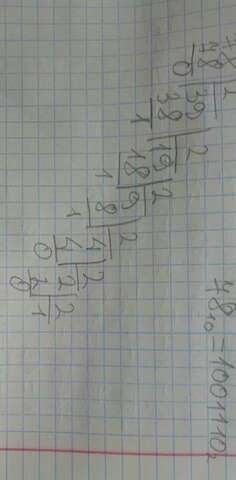 78 2
78 39 2
0 38 19 2
1 18 9 2
1 8 4 2
1 4 2 2
0 2 1
0
78₁₀=1001110₂